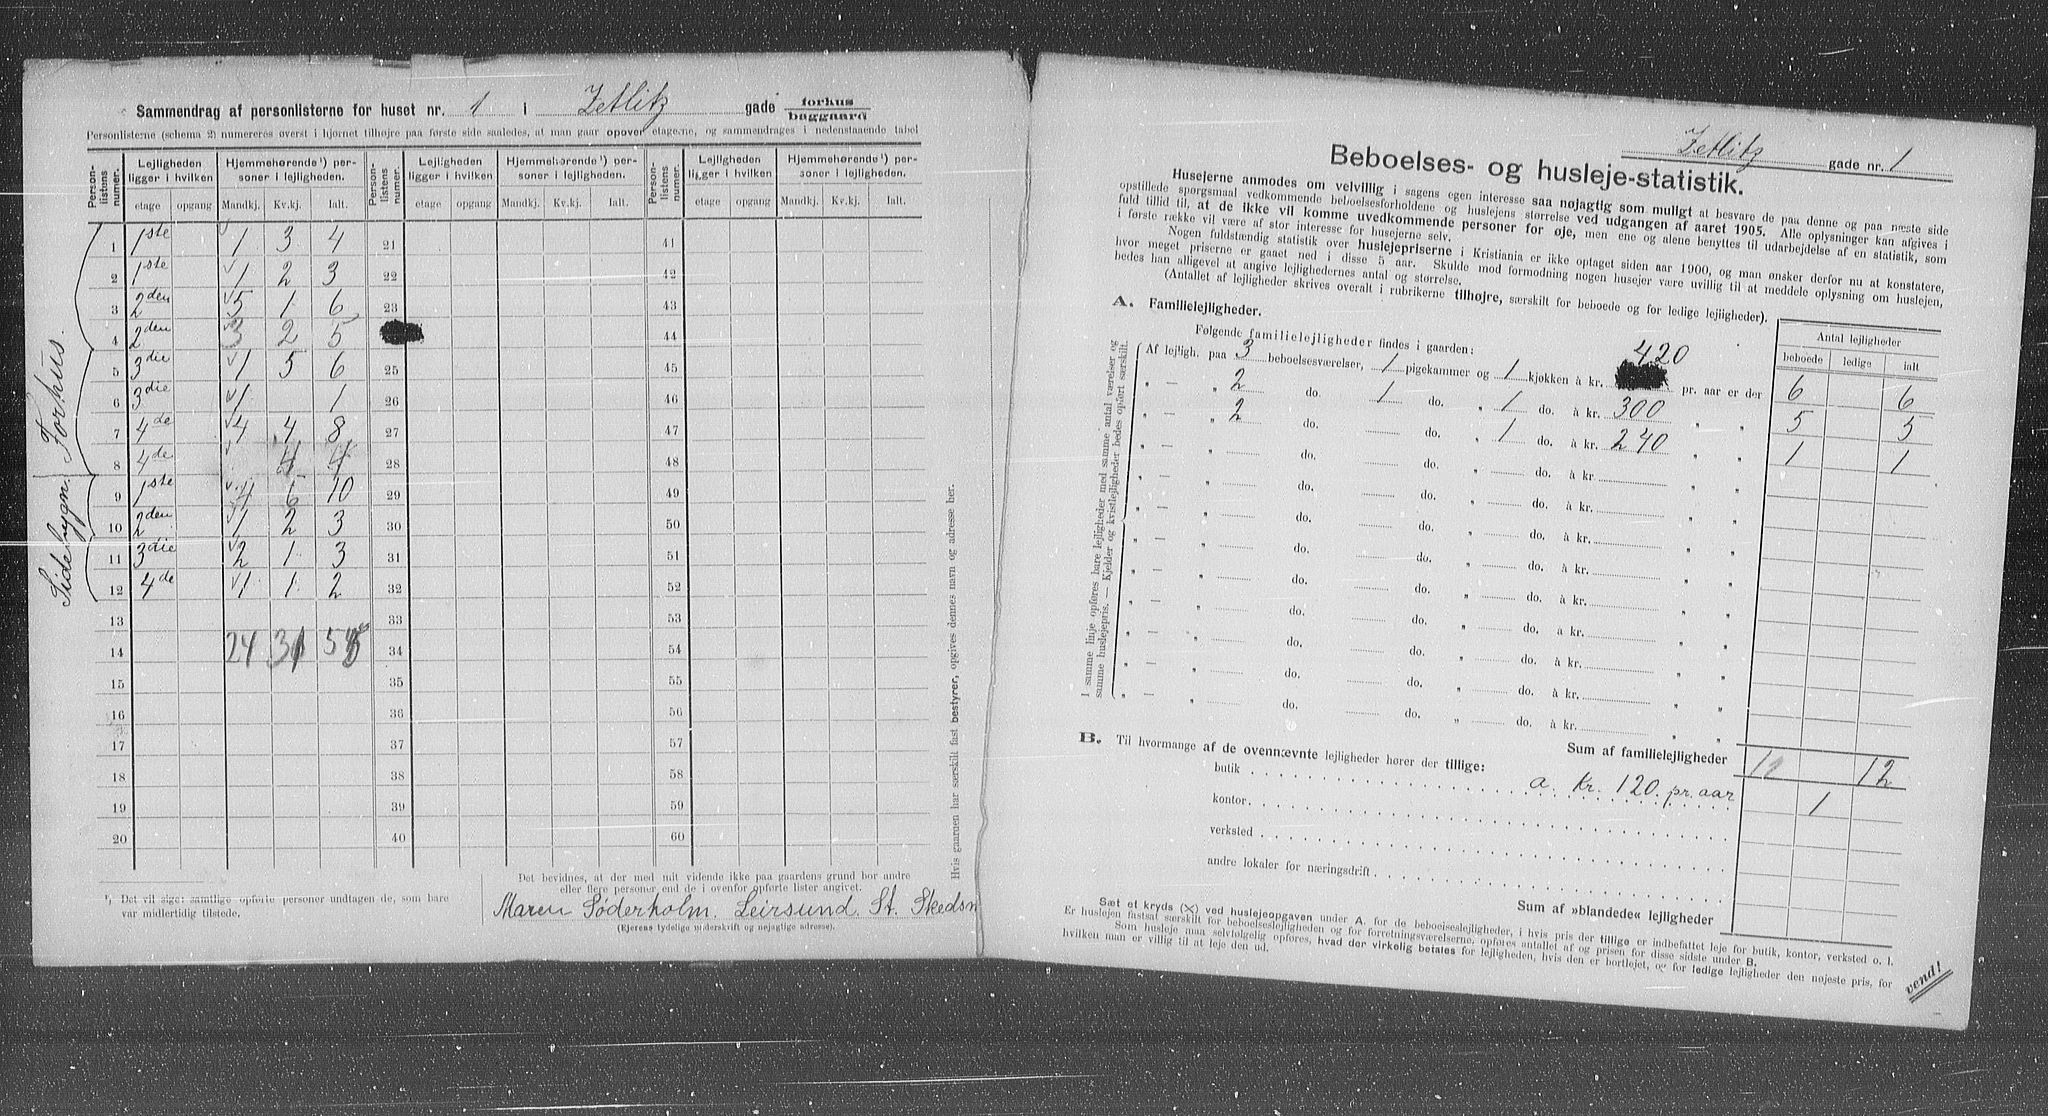 Sammendrag af personlisterne for huset nr. 1 i Zetlitz gade forhus baggaard
Personlisterne (schema 2) numereres øverst i hjørnet tilhøjre paa første side saaledes, at man gaar opover etagerne, og sammendrages i nedenstaaende tabel
Person-listens numer. | Lejligheden ligger i hvilken | Hjemmehørende ¹) personer i lejligheden. | Person-listens numer. | Lejligheden ligger i hvilken | Hjemmehørende ¹) personer i lejligheden. | Person-listens numer. | Lejligheden ligger i hvilken | Hjemmehørende ¹) personer i lejligheden.
etage opgang Mandkj. Kv.kj. Ialt. etage opgang Mandkj. Kv.kj. Ialt. etage opgang Mandkj. Kv.kj. Ialt.
Forhus.
1 1ste 1 3 4 21 41
2 1ste 1 2 3 22 42
3 2den 5 1 6 23 43
4 2den 3 2 5 44
5 3die 1 5 6 25 45
6 3die 1 1 26 46
7 4de 4 4 8 27 47
8 4de 4 4 28 48
Sidebygn.
9 1ste 4 6 10 29 49
10 2den 1 2 3 30 50
11 3die 2 1 3 31 51
12 4de 1 1 2 32 52
13 33 53
14 24 31 34 54
15 35 55
16 36 56
17 37 57
18 38 58
19 39 59
20 40 60
Hvis gaarden har særskilt fast bestyrer, opgives dennes navn og adresse her.
¹) Det vil sige: samtlige opførte personer undtagen de, som bare
var midlertidig tilstede.
Det bevidnes, at der med mit vidende ikke paa gaardens grund bor andre
eller flere personer end de i ovenfor opførte lister angivet.
Maren Søderholm. Leirsund. St. Skedsm
(Ejerens tydelige underskrift og nøjagtige adresse).
Zetlitz gade nr. 1
Beboelses- og husleje-statistik.
Husejerne anmodes om velvillig i sagens egen interesse saa nøjagtig som muligt at besvare de paa denne og paa næste side
opstillede spørgsmaal vedkommende beboelsesforholdene og huslejens størrelse ved udgangen af aaret 1905. Alle oplysninger kan afgives i
fuld tillid til, at de ikke vil komme uvedkommende personer for øje, men ene og alene benyttes til udarbejdelse af en statistik, som
i første række vil være af stor interesse for husejerne selv.
Nogen fuldstændig statistik over huslejepriserne i Kristiania er ikke optaget siden aar 1900, og man ønsker derfor nu at konstatere,
hvor meget priserne er gaaet ned i disse 5 aar. Skulde mod formodning nogen husejer være uvillig til at meddele oplysning om huslejen,
bedes han alligevel at angive lejlighedernes antal og størrelse.
(Antallet af lejligheder skrives overalt i rubrikerne tilhøjre, særskilt for beboede og for ledige lejligheder).
A. Familielejligheder.
Følgende familielejligheder findes i gaarden:
Antal lejligheder
beboede ledige ialt
I samme linje opføres bare lejligheder med samme antal værelser og
samme huslejepris. — Kjelder og kvistlejligheder bedes opført særskilt.
Af lejligh. paa 3 beboelsesværelser, 1 pigekammer og 1 kjøkken à kr. 420 pr. aar er der 6 6
" — " 2 do. 1 do. " 1 do. à kr. 300 " " 5 5
" — " 2 do. do. " 1 do. à kr. 240 " " 1 1
" — " do. do. " do. à kr. " "
" — " do. do. " do. à kr. " "
" — " do. do. " do. à kr. " "
" — " do. do. " do. à kr. " "
" — " do. do. " do. à kr. " "
" — " do. do. " do. à kr. " "
" — " do. do. " do. à kr. " "
" — " do. do. " do. à kr. " "
" — " do. do. " do. à kr. " "
Sum af familielejligheder 12 12
B. Til hvormange af de ovennævnte lejligheder hører der tillige:
butik a. Kr. 120. pr. aar 1
kontor
verksted
andre lokaler for næringsdrift
Sum af »blandede« lejligheder
Sæt et kryds (X) ved huslejeopgaven under A. for de beboelseslejligheder, i hvis pris der tillige er indbefattet leje for butik, kontor, verksted o. l.
Er huslejen fastsat særskilt for beboelseslejligheden og for forretningsværelserne, opføres antallet af og prisen for disse sidste under B.
Som husleje maa selvfølgelig opføres, hvad der virkelig betales for lejligheden, hvis den er bortlejet, og for ledige lejligheder den nøjeste pris, for
hvilken man er villig til at leje den ud.
vend!